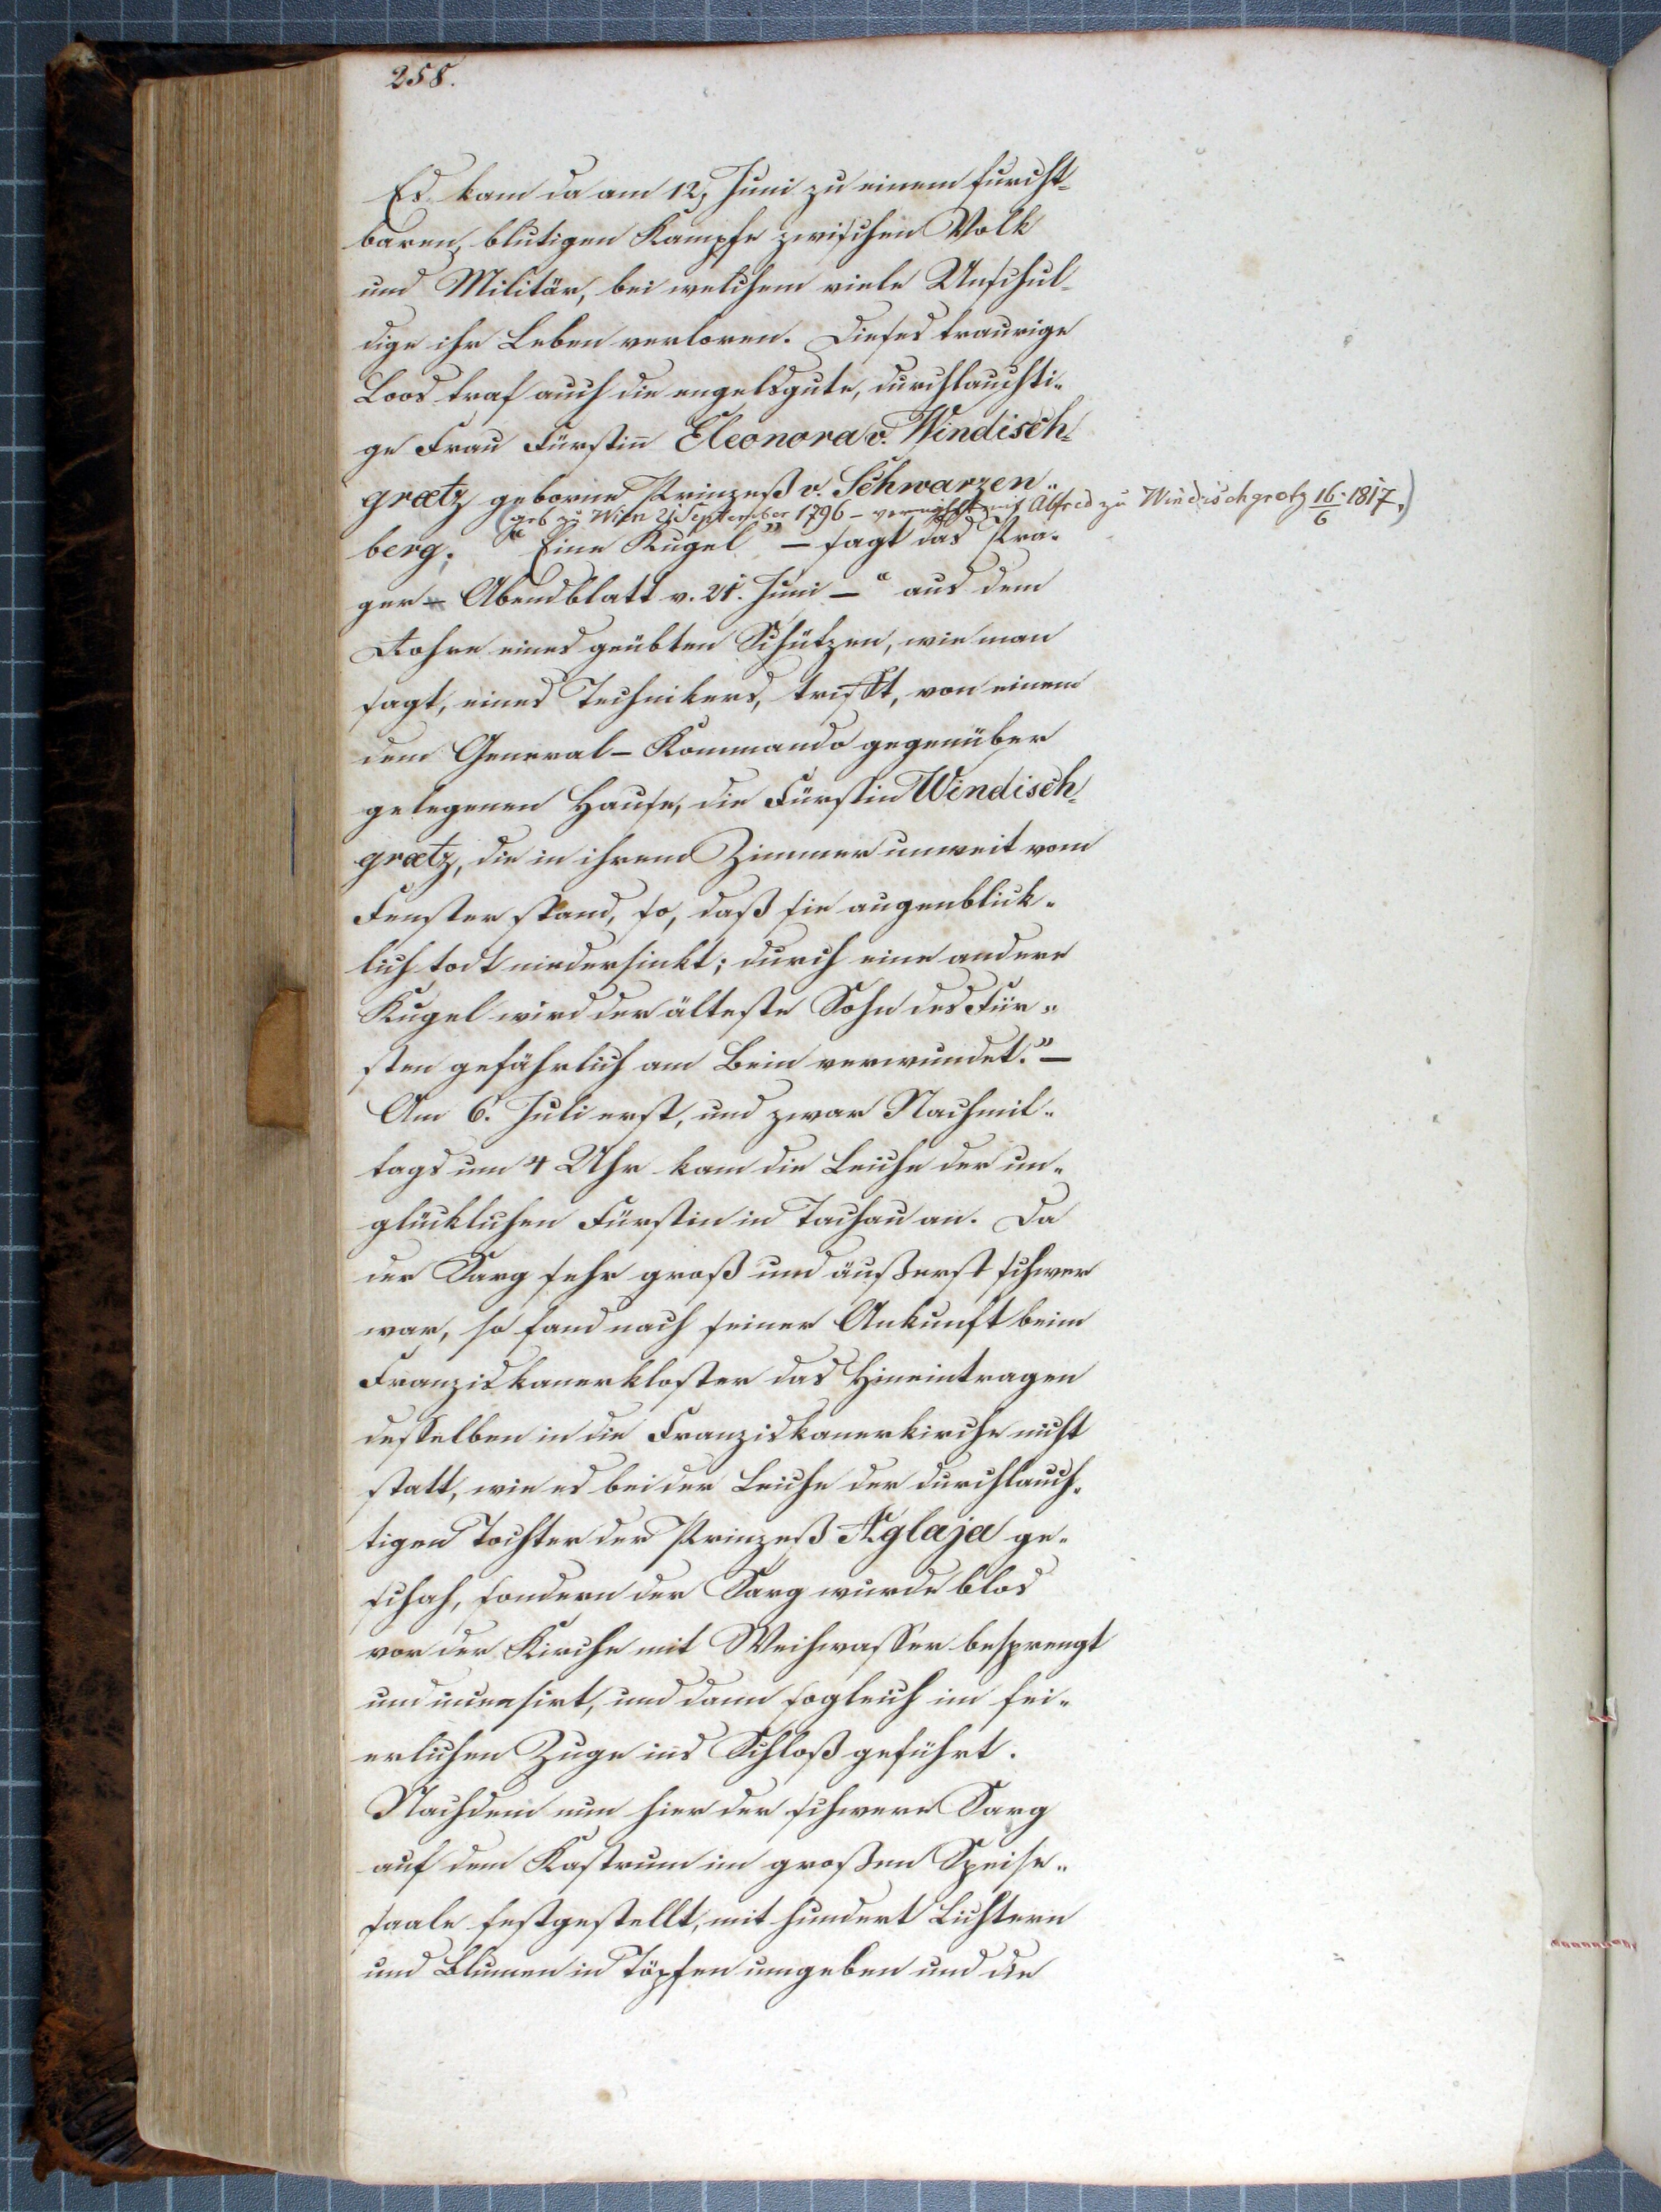 258.
Es kam da am 12, Juni zu einem furcht-
baren, blutigen Kampfe zwischen Volk
und Militär, bei welchem viele Unschul-
dige ihr Leben verloren. Dieses traurige
Loos traf auch die engelsgute, durchlauchti-
ge Frau Fürstin̄ Eleonora v. Windisch-
grætz geborne Prinzeß v. Schwarzen-
(geb zu Wien 21 September 1796 - vermählt mit Alfred zu Windischgrätz 16/6 1817.)
berg. "Eine Kugel" - sagt das Pra-
ger - Abendblatt v. 21. Juni - "aus dem
Rohre eines geübten Schützen, wie man
sagt, eines Technikers, trifft, von einem
dem General-Kommando gegenüber
gelegenen Hause, die Fürstin Windisch-
grætz, die in ihrem Zimmer unweit vom
Fenster stand, so, daß sie augenblick-
lich todt niedersinkt; durch eine andere
Kugel wird der älteste Sohn des Für-
sten gefährlich am Bein verwundet." -
Am 6. Juli erst, und zwar Nachmit-
tags um 4 Uhr kam die Leiche der un-
glücklichen Fürstin in Tachau an. Da
der Sarg sehr groß und äußerst schwer
war, so fand nach seiner Ankunft beim
Franziskanerkloster das Hineintragen
desselben in die Franziskanerkirche nicht
statt, wie es bei der Leiche der durchlauch-
tigen Tochter der Prinzeß Aglaja ge-
schah, sondern der Sarg wurde blos
vor der Kirche mit Weihwasser besprengt
und incensirt, und dann sogleich im fei-
erlichen Zuge ins Schloß geführt.
Nachdem nun hier der schwere Sarg
auf dem Kastrum im großen Speise-
saale festgestellt, mit hundert Lichtern
und Blumen in Töpfen umgeben und die